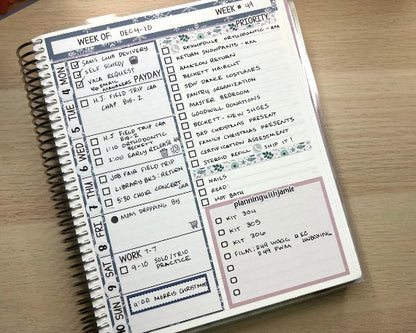 WEEK OF: DEC 4-10
WEEK # 49
MON 4
SAMS CLUB DELIVERY
SELF SCHED
VACA REQUEST
PAYDAY
TUE 5
H.J. FIELD TRIP
CHAT BIG-2
WED 6
H.J. FIELD TRIP
BIG-2
1:10 ORTHODONTIC
BECKETT
2:00 EARLY RELEASE
THU 7
JOB FAIR FIELD TRIP
LIBRARY BKS: RETURN
5:30 CHOIR CONCERT
FRI 8
MIMI DROPPING BY
SAT 9
WORK 7-7
9-10 SOLO/TRIO
PRACTICE
SUN 10
11:00 MORRIS CHRISTMAS
PRIORITY
RESCHEDULE ORTHODONTIC - AM
RETURN SNOWPANTS - KM
AMAZON RETURN
BECKETT HAIRCUT
SEW DANCE COSTUMES
PANTRY ORGANIZATION
MASTER BEDROOM
GOODWILL DONATIONS
BECKETT - NEW SHOES
DAD CHRISTMAS PRESENT
FAMILY CHRISTMAS PRESENTS
CERTIFICATION ASSESSMENT
STEROID REFILL - SHIP IT!
NAILS
READ:
HOT BATH
planningwithjamie
KIT 304
KIT 305
KIT 306
FILM: 249 WOCC REC
249 PWM UNBOXING